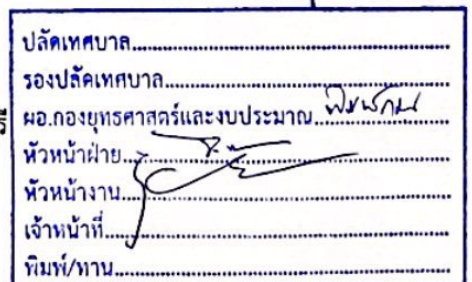 ปลัดเทศบาล
รองปลัดเทศบาล
ผอ.กองยุทธศาสตร์และงบประมาณ
หัวหน้าฝ่าย
หัวหน้างาน
เจ้าหน้าที่
พิมพ์/ทาน